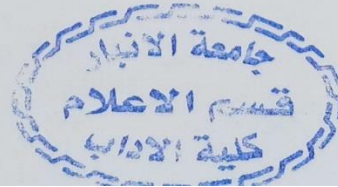 جامعة الانبار
قسم الاعلام
كلية الاداب